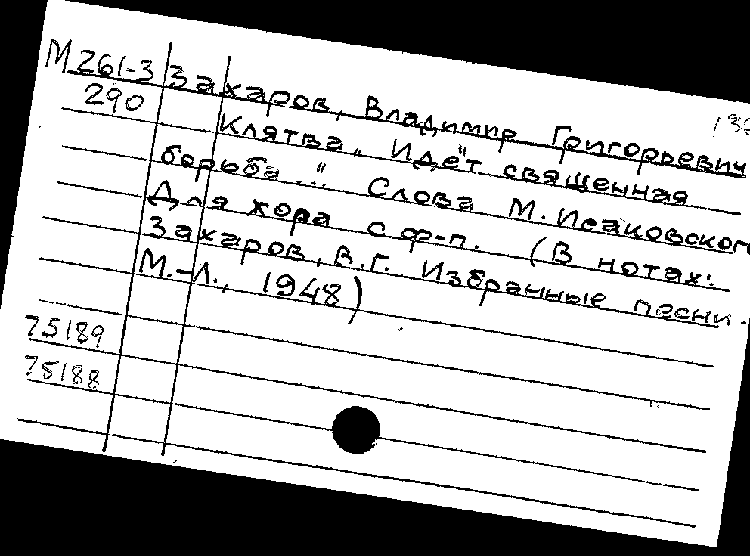 М261-3 Захаров, Владимир Григорьевич
290 Клятва „Идёт священная
борьба..." Слова М. Исаковского
Для хора с ф-п. (В нотах:
Захаров, В.Г. Избранные песни.
М.-Л., 1948)
75189
75188